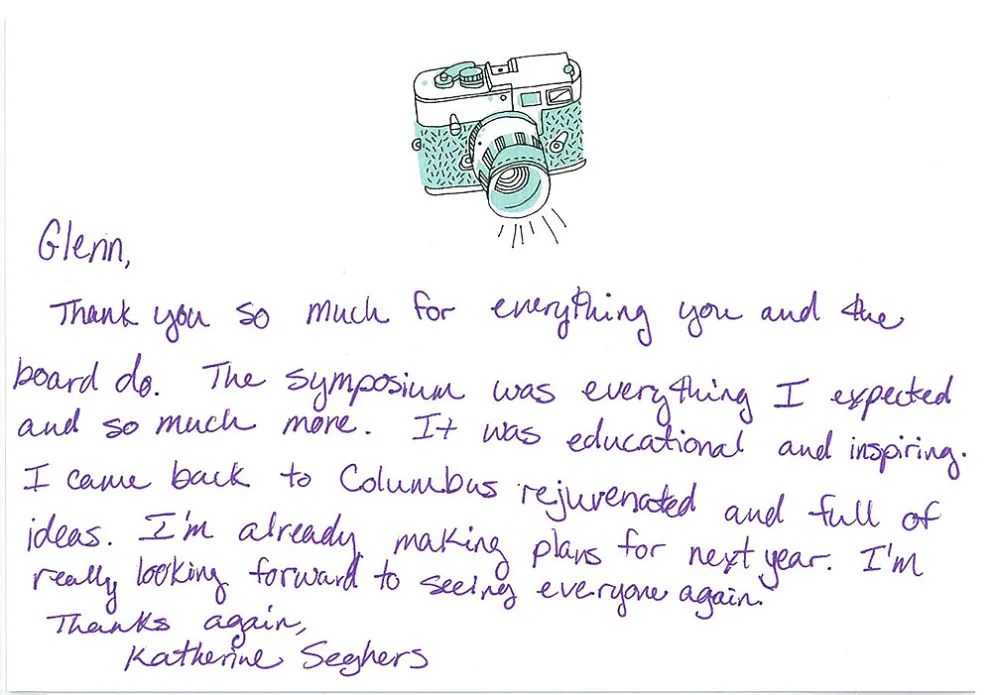 Glenn,
Thank you so much for everything you and the
board do. The symposium was everything I expected
and so much more. It was educational and inspiring.
I came back to Columbus rejuvenated and full of
ideas. I'm already making plans for next year. I'm
really looking forward to seeing everyone again.
Thanks again,
Katherine Seghers